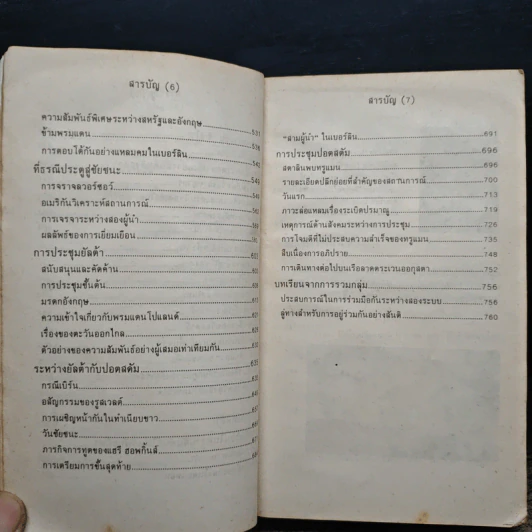 สารบัญ (6)
ความสัมพันธ์พิเศษระหว่างสหรัฐและอังกฤษ
ข้ามพรมแดน 531
การตอบโต้กันอย่างแหลมคมในเบอร์ลิน 538
ที่ธรณีประตูสู่ชัยชนะ 542
การจราจลวอร์ซอว์ 549
อเมริกันวิเคราะห์สถานการณ์
การเจรจาระหว่างสองผู้นำ
ผลลัพธ์ของการเยี่ยมเยือน
การประชุมยัลต้า
สนับสนุนและคัดค้าน
การประชุมขั้นต้น
มรดกอังกฤษ
ความเข้าใจเกี่ยวกับพรมแดนโปแลนด์
เรื่องของตะวันออกไกล
ตัวอย่างของความสัมพันธ์อย่างผู้เสมอเท่าเทียมกัน
ระหว่างยัลต้ากับปอตสดัม
กรณีเบิร์น
อสัญกรรมของรูสเวลต์
การเผชิญหน้ากันในทำเนียบขาว
วันชัยชนะ
ภารกิจการทูตของแฮรี ฮอพกิ้นส์
การเตรียมการขั้นสุดท้าย
สารบัญ (7)
"สามผู้นำ" ในเบอร์ลิน 691
การประชุมปอตสดัม 696
สตาลินพบทรูแมน 696
รายละเอียดปลีกย่อยที่สำคัญของสถานการณ์ 705
วันแรก 713
ภาวะล่อแหลมเรื่องระเบิดปรมาณู 719
เหตุการณ์ด้านสังคมระหว่างการประชุม 726
การโจมตีที่ไม่ประสบความสำเร็จของทรูแมน 735
สืบเนื่องการอภิปราย 748
การเดินทางต่อไปบนเรือลาดตระเวนออกุสตา 752
บทเรียนจากการรวมกลุ่ม 756
ประสบการณ์ในการร่วมมือกันระหว่างสองระบบ 756
ลู่ทางสำหรับการอยู่ร่วมกันอย่างสันติ 760